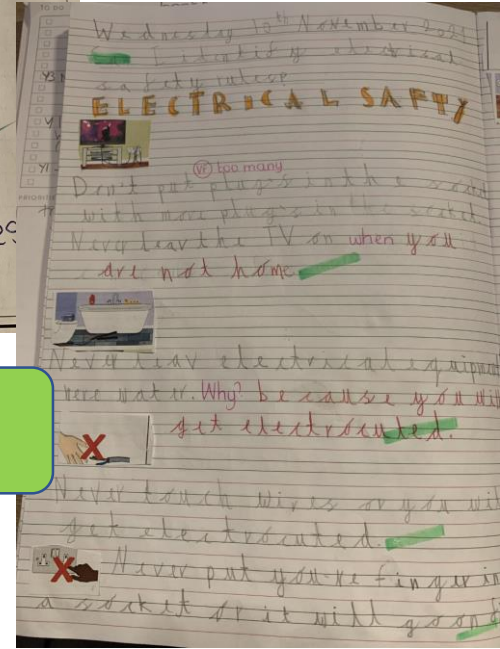 TO DO
Wednesday 10th November 2021
Can I identify electrical
safety rules?
ELECTRICAL SAFTY
VF too many
Don't put plugs in the socket
with more plugs in the socket
Never leav the TV on when you
are not home
Never leav electrical equipment
nere water. Why? because you will
get electrocuted.
Never touch wires or you will
get electrocuted.
Never put you're finger in
a socket or it will go on